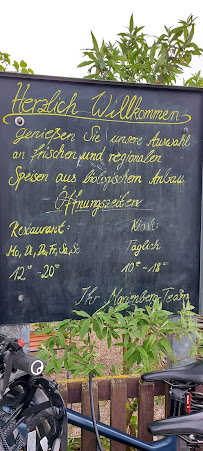 Herzlich Willkommen
genießen Sie unsere Auswahl
an frischen und regionalen
Speisen aus biologischem Anbau
Öffnungszeiten
Restaurant:
Mo, Di, Do, Fr, Sa, So
12⁰⁰ - 20⁰⁰
Kiosk:
Täglich
10⁰⁰ - 18⁰⁰
Ihr Team